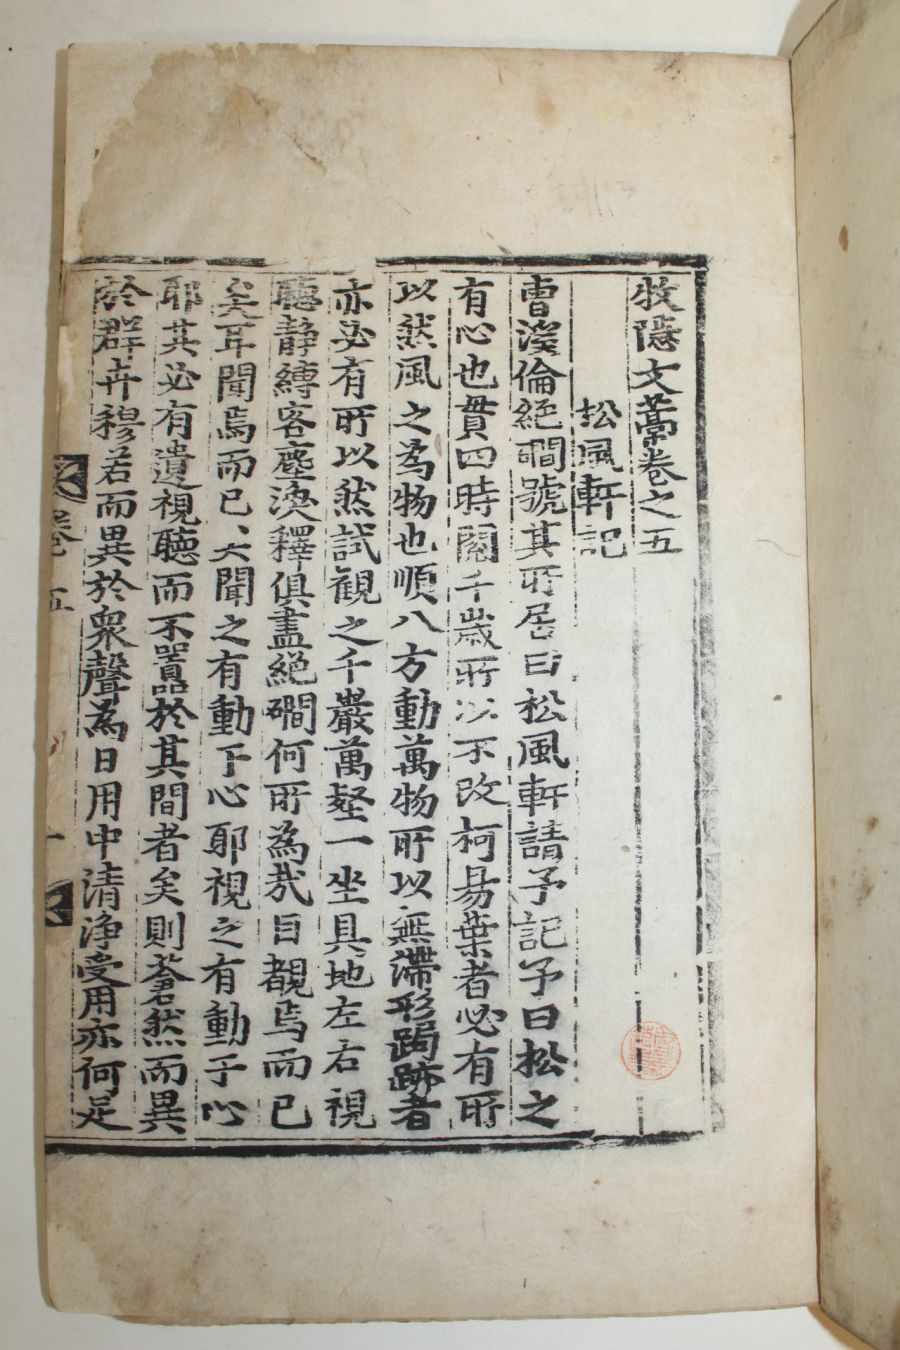 牧隱文藁卷之五
松風軒記
曹溪倫絕磵號其所居曰松風軒請予記予曰松之
有心也貫四時閱千歲所以不改柯易葉者必有所
以然風之為物也順八方動萬物所以無滯形跼跡者
亦必有所以然試觀之千巖萬壑一坐具地左右視
聽靜縛客塵渙釋俱盡絕磵何所為哉目覩焉而已
矣耳聞焉而已、大聞之有動于心耶視之有動于心
耶其必有遺視聽而不囂於其間者矣則蒼然而異
於群卉穆若而異於衆聲為日用中清淨受用亦何足
卷五
一